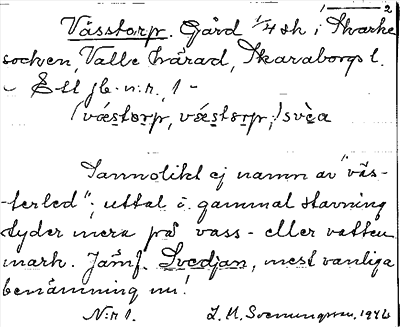 1 — 2
Vässtorp. Gård 1/4 sk i Skarke
socken, Valle härad, Skaraborgs l.
– Ett jb. n:r. 1 –
/væstorp, væstorp,/ svèa
Sannolikt ej namn av "väs-
terled"; uttal o. gammal stavning
tyder mera på vass- eller vatten
mark. Jämf. Svedjan, mest vanliga
benämning nu!
N:r 1. L. M. Svenungsson, 1946